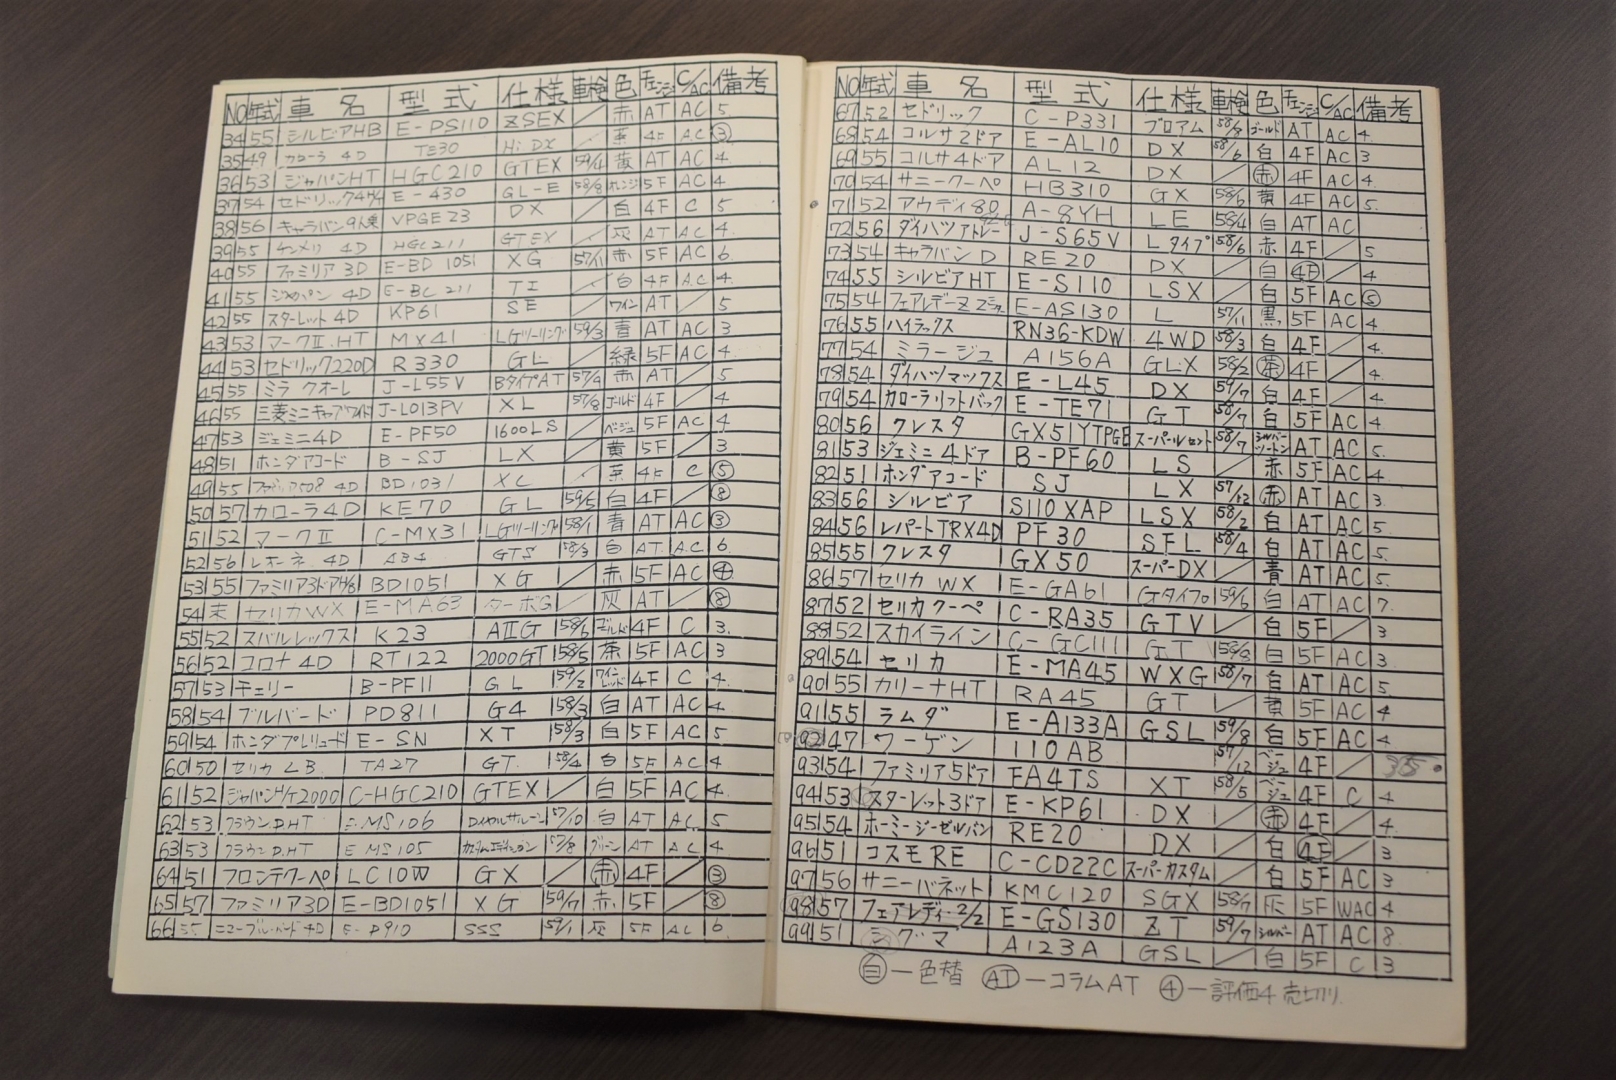 NO 年式 車名 型式 仕様 車検 色 チェンジ C/AC 備考
34 55 シルビアHB E-PS110 ZSEX ／ 赤 AT AC 5.
35 49 カローラ 4D TE30 Hi DX ／ 茶 4F AC ③
36 53 ジャパンHT HGC210 GTEX 59/4 黄 AT AC 4.
37 54 セドリック4H/T E-430 GL-E 58/8 オレンジ 5F AC 4
38 56 キャラバン9人乗 VPGE23 DX ／ 白 4F C 5
39 55 ケンメリ 4D HGC211 GTEX ／ 灰 AT AC 4.
40 55 ファミリア 3D E-BD 1051 XG 57/11 赤 5F AC 6
41 55 ジャパン 4D E-BC 211 TI ／ 白 4F A.C 4.
42 55 スターレット 4D KP61 SE ／ ワイン AT ／ 5
43 53 マークⅡ.HT MX41 LGツーリング 59/3 青 AT AC 3
44 53 セドリック220D R330 GL ／ 緑 5F AC 4.
45 55 ミラ クオーレ J-L55V BタイプAT 57/9 赤 AT ／ 5
46 55 三菱ミニキャブワイド J-L013PV XL 57/8 ゴールド 4F ／ 4
47 53 ジェミニ4D E-PF50 1600LS ／ ベージュ 5F AC 4
48 51 ホンダアコード B-SJ LX ／ 黄 5F ／ 3
49 55 ファミリア508 4D BD1031 XC ／ 茶 4F C ⑤
50 57 カローラ4D KE70 GL 59/5 白 4F ／ ⑧
51 52 マークⅡ C-MX31 LGツーリング 58/1 青 AT AC ③
52 56 レオーネ 4D AB4 GTS 58/3 白 AT A.C 6.
53 55 ファミリア3ドアH/B BD1051 XG ／ 赤 5F AC ④
54 末 セリカWX E-MA63 ターボG ／ 灰 AT ／ ⑧
55 52 スバルレックス K23 AⅡG 58/6 ゴールド 4F C 3.
56 52 コロナ4D RT122 2000GT 58/5 茶 5F AC 3
57 53 チェリー B-PF11 GL 59/2 ワインレッド 4F C 4.
58 54 ブルバード PD811 G4 58/3 白 AT AC 4
59 54 ホンダプレリュード E-SN XT 58/3 白 5F AC 5
60 50 セリカLB TA27 GT. 58/4 白 5F AC 4
61 52 ジャパンH/T2000 C-HGC210 GTEX ／ 白 5F AC 4.
62 53 クラウンD.HT E.MS106 ロイヤルサルーン 57/10 白 AT AC 5
63 53 クラウンD.HT E.MS105 カスタムエディション 57/8 グリーン AT AC 4
64 51 フロンテクーペ LC10W GX ／ 赤 4F ／ ③
65 57 ファミリア3D E-BD1051 XG 59/7 赤 5F ／ ⑧
66 55 ニューブルーバード4D E-P910 SSS 59/1 灰 5F AC 6
NO 年式 車名 型式 仕様 車検 色 チェンジ C/AC 備考
67 52 セドリック C-P331 ブロアム 58/8 ゴールド AT AC 4.
68 54 コルサ2ドア E-AL10 DX 58/6 白 4F AC 3
69 55 コルサ4ドア AL12 DX ／ 赤 4F AC 4.
70 54 サニークーペ HB310 GX 58/6 黄 4F AC 5.
71 52 アウディ80 A-8YH LE 58/4 白 AT AC
72 56 ダイハツアトレー J-S65V Lタイプ 58/6 赤 4F ／ 5
73 54 キャラバンD RE20 DX ／ 白 4F ／ 4
74 55 シルビアHT E-S110 LSX ／ 白 5F AC ⑤
75 54 フェアレデーZ E-AS130 L 57/11 黒 5F AC 4
76 55 ハイラックス RN36-KDW 4WD 58/3 白 4F ／ 4.
77 54 ミラージュ A156A GLX 58/2 茶 4F ／ 4
78 54 ダイハツマックス E-L45 DX 59/7 白 4F ／ 4.
79 54 カローラリフトバック E-TE71 GT 58/7 白 5F AC 4
80 56 クレスタ GX51YTPGE スーパールセント 58/7 シルバーツートン AT AC 5.
81 53 ジェミニ4ドア B-PF60 LS ／ 赤 5F AC 4.
82 51 ホンダアコード SJ LX 57/12 赤 AT AC 3.
83 56 シルビア S110XAP LSX 58/2 白 AT AC 5.
84 56 レパートTRX4D PF30 SFL 58/4 白 AT AC 5.
85 55 クレスタ GX50 スーパーDX ／ 青 AT AC 5.
86 57 セリカ WX E-GA61 Gタイプ 59/6 白 AT AC 7.
87 52 セリカクーペ C-RA35 GTV ／ 白 5F ／ 3
88 52 スカイライン C-GC111 GT 58/3 白 5F AC 3.
89 54 セリカ E-MA45 WXG 58/7 白 AT AC 5.
90 55 カリーナHT RA45 GT ／ 黄 5F AC 4
91 55 ラムダ E-A133A GSL 59/8 白 5F AC 4
92 47 ワーゲン 110AB 57/12 ベージュ 4F ／ 3.5
93 54 ファミリア5ドア FA4TS XT 58/5 ベージュ 4F C 4
94 53 スターレット3ドア E-KP61 DX ／ 赤 4F ／ 4.
95 54 ホーミージーゼルバン RE20 DX ／ 白 4F ／ 3
96 51 コスモRE C-CD22C スーパーカスタム ／ 白 5F AC 3
97 56 サニーバネット KMC120 SGX 58/7 灰 5F WAC 4
98 57 フェアレディ・2/2 E-GS130 ZT 59/7 シルバー AT AC 8.
99 51 シグマ A123A GSL ／ 白 5F C 3
白—色替 AT—コラムAT ④—評価4 売切り.